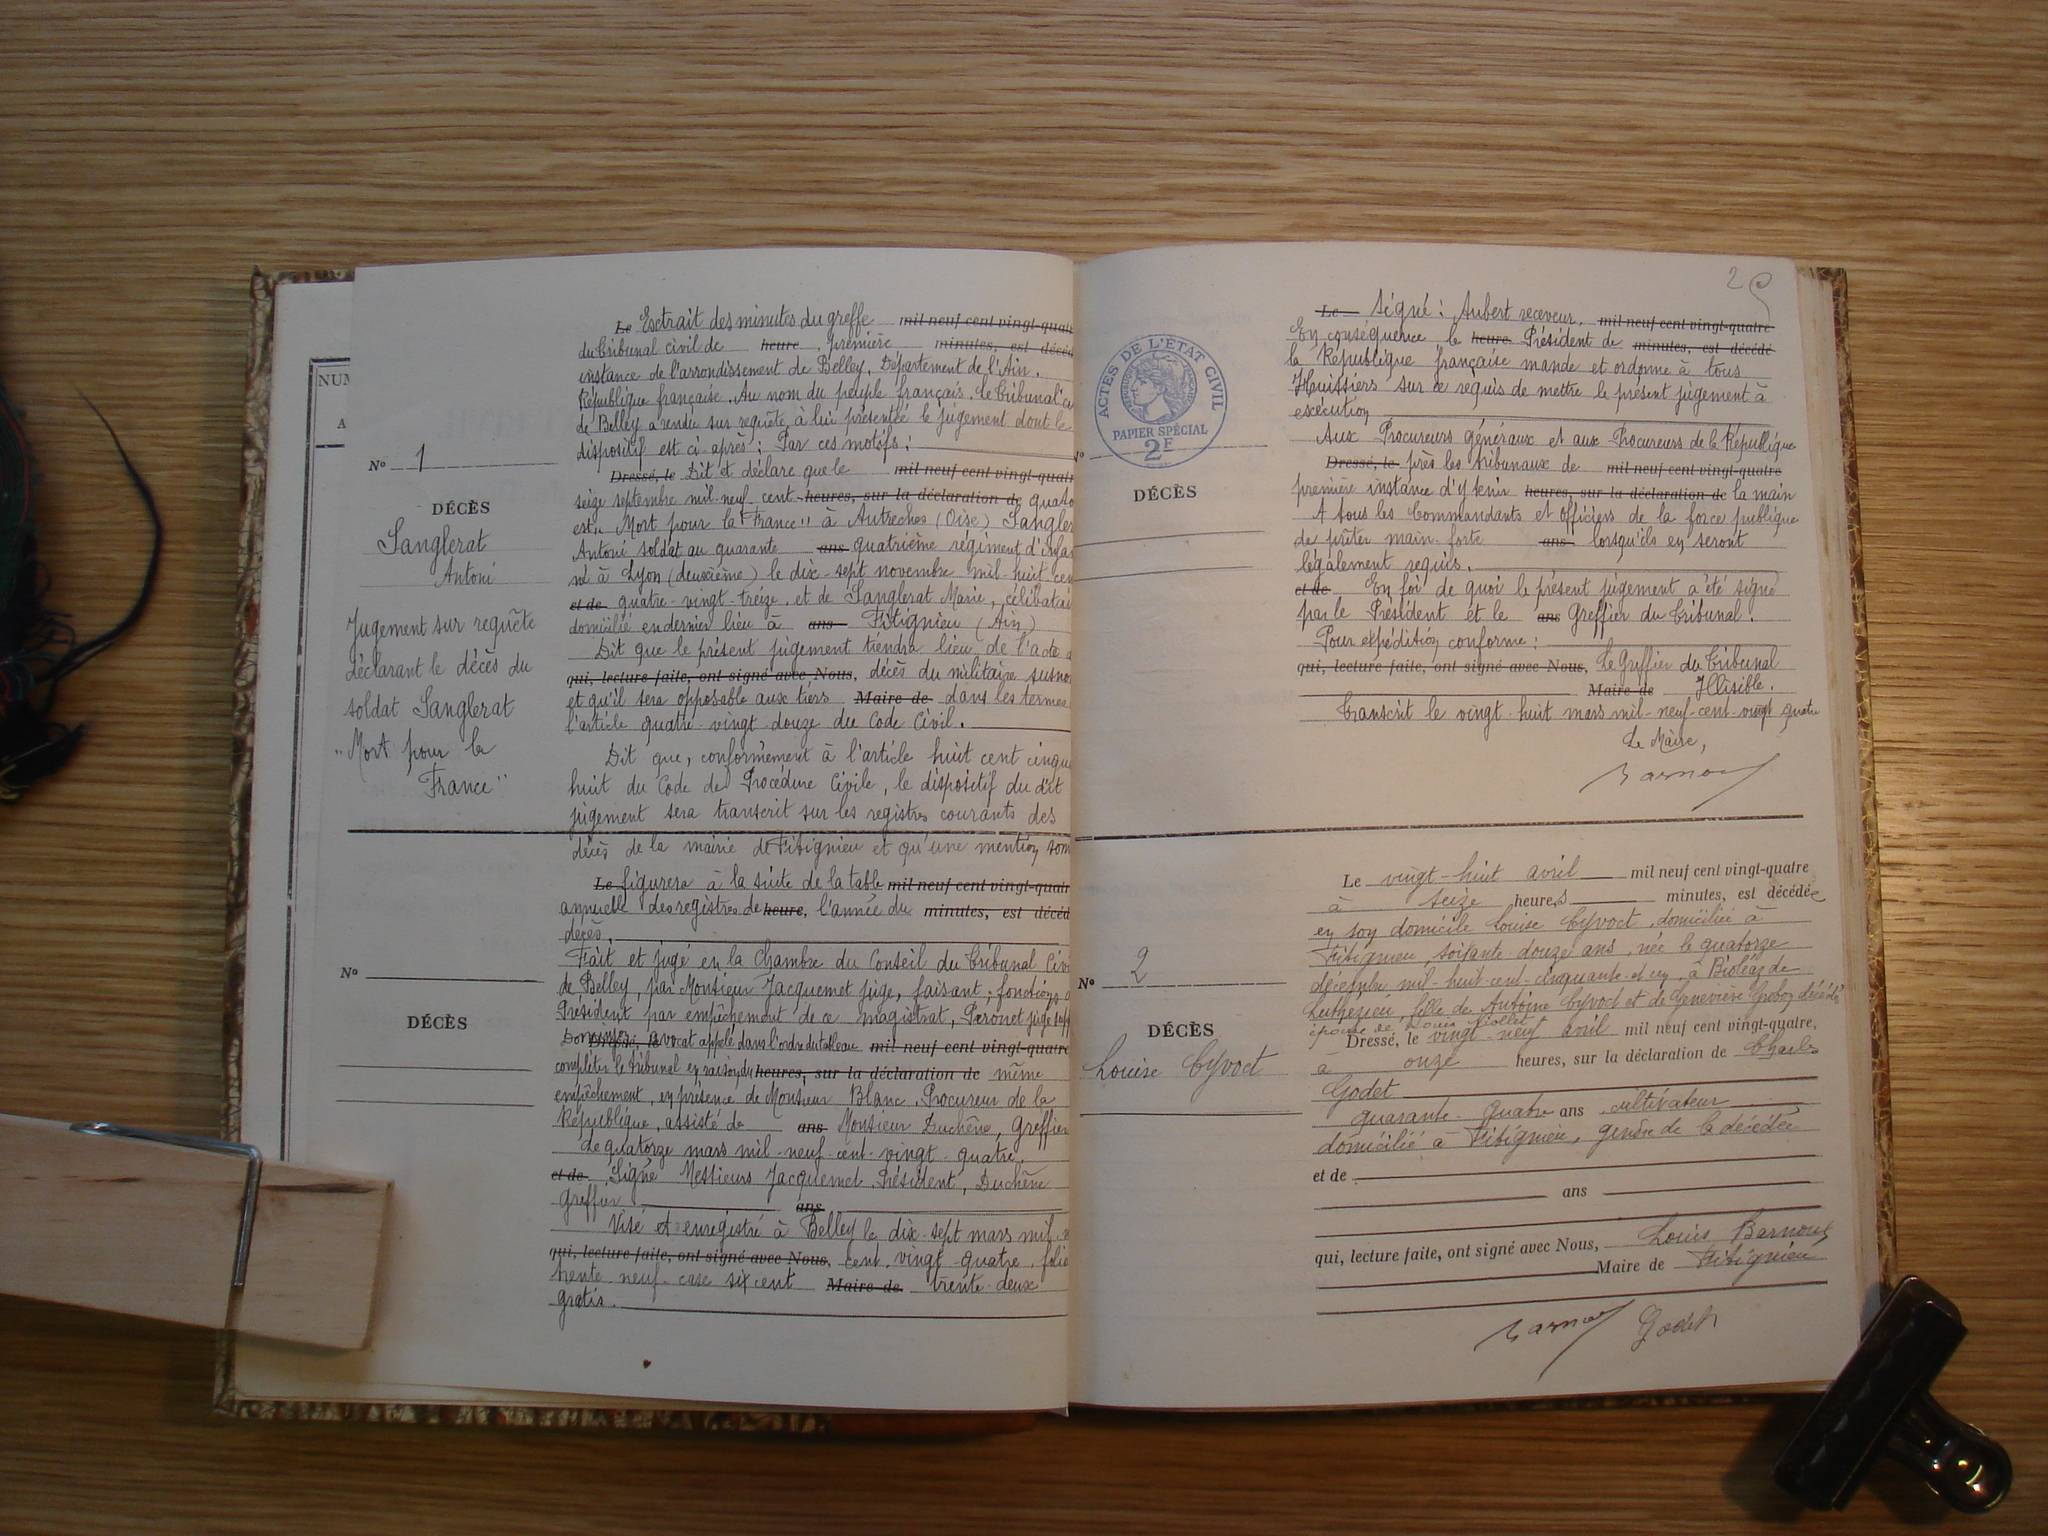 NUM
A
Nº 1
DÉCÈS
Sanglerat
Antoni
Jugement sur requête
déclarant le décès du
soldat Sanglerat
"Mort pour la
France"
Le Extrait des minutes du greffe mil neuf cent vingt-quatr
du Tribunal civil de heure première minutes, est décéd
instance de l'arrondissement de Belley, Département de l'Ain.
République française. Au nom du peuple français. Le Tribunal
de Belley a rendu sur requête, à lui présentée le jugement dont le
dispositif est ci après: Par ces motifs:
Dressé, le Dit et déclare que le mil neuf cent vingt-quatr
seize septembre mil-neuf-cent heures, sur la déclaration de quato
est "Mort pour la France" à Autreches (Oise) Sangler
Antoni soldat au quarante ans quatrième régiment d'infan
né à Lyon (deuxième) le dix-sept novembre mil-huit-cen
et de quatre-vingt-treize, et de Sanglerat Marie, célibatai
domicilié en dernier lieu à ans Fitignieu (Ain)
Dit que le présent jugement tiendra lieu de l'acte
qui, lecture faite, ont signé avec Nous, décès du militaire susno
et qu'il sera opposable aux tiers Maire de dans les termes
l'article quatre-vingt-douze du Code Civil.
Dit que, conformément à l'article huit cent cinqu
huit du Code de Procédure Civile, le dispositif du dit
jugement sera transcrit sur les registres courants des
décès de la mairie de Fitignieu et qu'une mention som
Le figurera à la suite de la table mil neuf cent vingt-quatr
annuelle des registres de heure, l'année du minutes, est décéd
décès.
Fait et jugé en la Chambre du Conseil du Tribunal Civi
de Belley, par Monsieur Jacquemet juge, faisant fonctions
Président par empêchement de ce magistrat, Peronet juge supp
Dressé, le avocat appelé dans l'ordre du tableau mil neuf cent vingt-quatre
compléter le tribunal en raison du heures, sur la déclaration de même
empêchement, en présence de Monsieur Blanc, Procureur de la
République, assisté de ans Monsieur Duchêne, Greffier
de quatorze mars mil-neuf-cent-vingt-quatre.
et de Signé Messieurs Jacquemet Président, Duchêne
Greffier ans
Visé et enregistré à Belley le dix-sept mars mil
qui, lecture faite, ont signé avec Nous, cent vingt quatre, folio
trente-neuf case six cent Maire de trente-deux
gratis.
Nº
DÉCÈS
25
ACTES DE L'ÉTAT CIVIL
RÉPUBLIQUE FRANÇAISE
PAPIER SPÉCIAL
2F
Nº
DÉCÈS
Le Signé: Aubert receveur. mil neuf cent vingt-quatre
En conséquence, le heure Président de minutes, est décédé
la République française mande et ordonne à tous
Huissiers sur ce requis de mettre le présent jugement à
exécution
Aux Procureurs généraux et aux Procureurs de la République
Dressé, le près les tribunaux de mil neuf cent vingt-quatre
première instance d'y tenir heures, sur la déclaration de la main
A tous les Commandants et Officiers de la force publique
de prêter main-forte ans lorsqu'ils en seront
légalement requis.
et de En foi de quoi le présent jugement a été signé
par le Président et le ans Greffier du Tribunal.
Pour expédition conforme:
qui, lecture faite, ont signé avec Nous, Le Greffier du Tribunal
Maire de Illisible.
Transcrit le vingt-huit mars mil-neuf-cent-vingt quatre
Le Maire,
Barnoux
Nº 2
DÉCÈS
Louise Cyvoct
Le vingt-huit avril mil neuf cent vingt-quatre
à seize heures minutes, est décédée
en son domicile Louise Cyvoct, domiciliée à
Fitignieu, soixante douze ans, née le quatorze
décembre mil-huit-cent-cinquante-et-un, à Bioléaz de
Luthezieu, fille de Antoine Cyvoct et de Geneviève décédés
épouse de Louis
Dressé, le vingt-neuf avril mil neuf cent vingt-quatre,
à onze heures, sur la déclaration de Charles
Godet
quarante-quatre ans cultivateur
domicilié à Fitignieu, gendre de la décédée
et de
ans
qui, lecture faite, ont signé avec Nous, Louis Barnoux
Maire de Fitignieu
Barnoux Godet